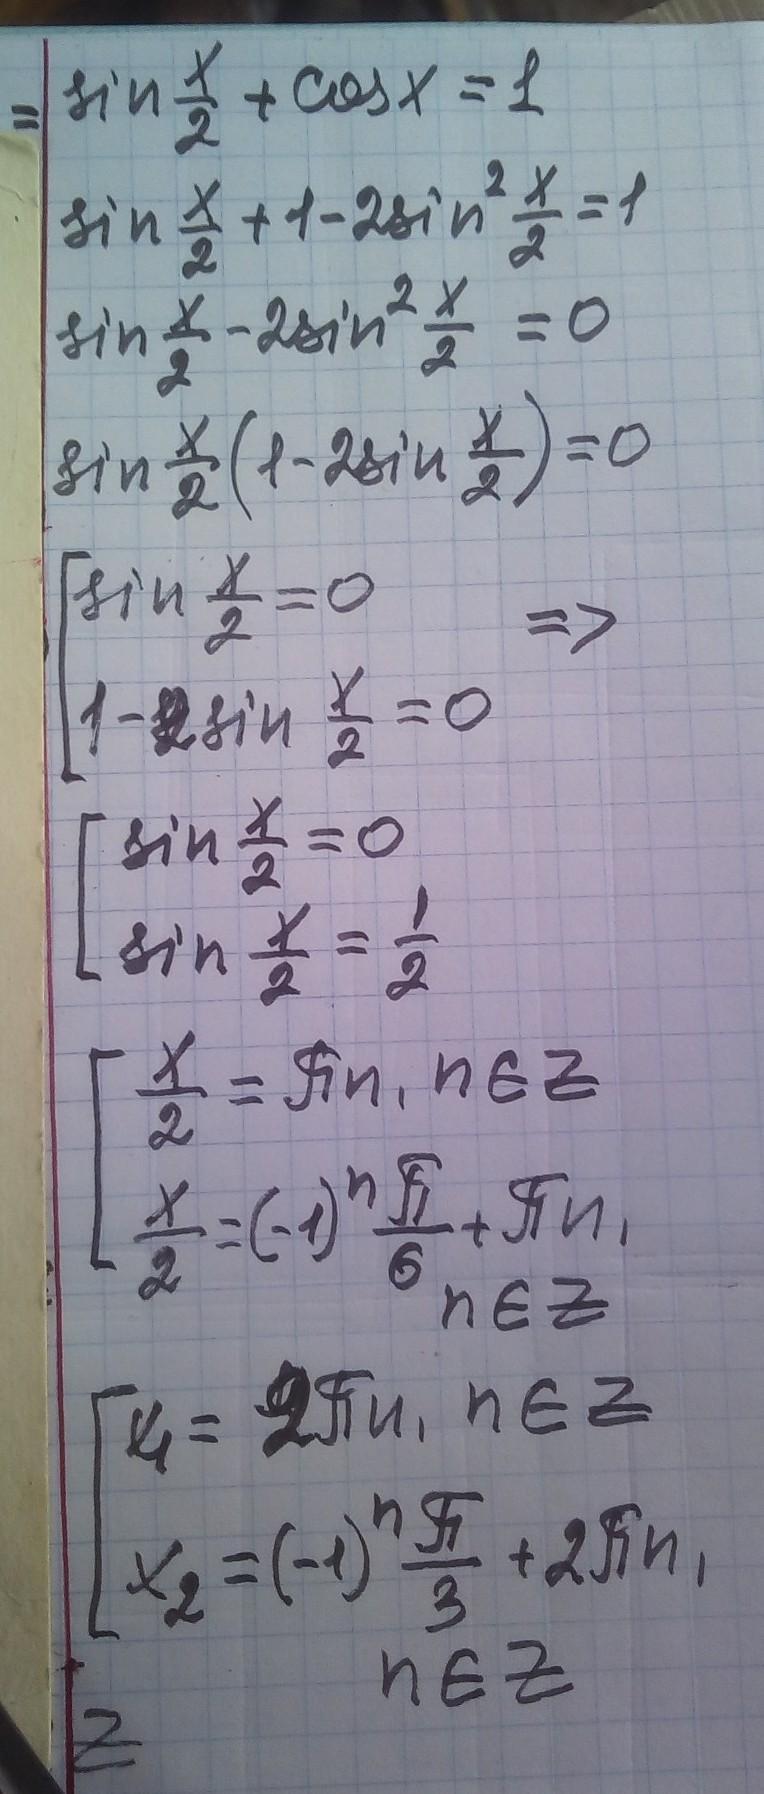 = sin x/2 + cos x = 1
sin x/2 + 1 - 2sin² x/2 = 1
sin x/2 - 2sin² x/2 = 0
sin x/2 (1 - 2sin x/2) = 0
[ sin x/2 = 0 =>
1 - 2 sin x/2 = 0
[ sin x/2 = 0
sin x/2 = 1/2
[ x/2 = πn, n ∈ Z
x/2 = (-1)ⁿ π/6 + πn,
n ∈ Z
[ x₁ = 2πn, n ∈ Z
x₂ = (-1)ⁿ π/3 + 2πn,
n ∈ Z
Z